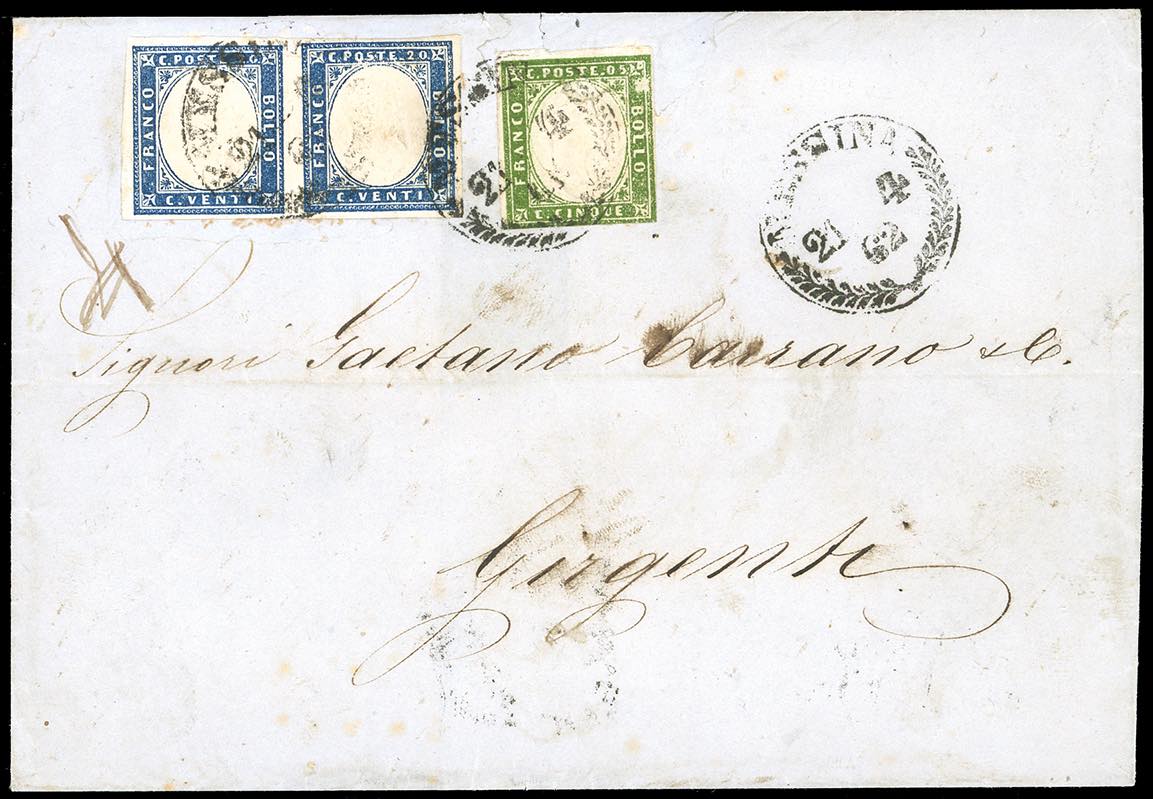 C. POSTE. 20
FRANCO
BOLLO
C. VENTI
C. POSTE. 20
FRANCO
BOLLO
C. VENTI
C. POSTE. 05
FRANCO
BOLLO
C. CINQUE
MESSINA
21 4
62
Signori Gaetano Carrano & C.
Girgenti